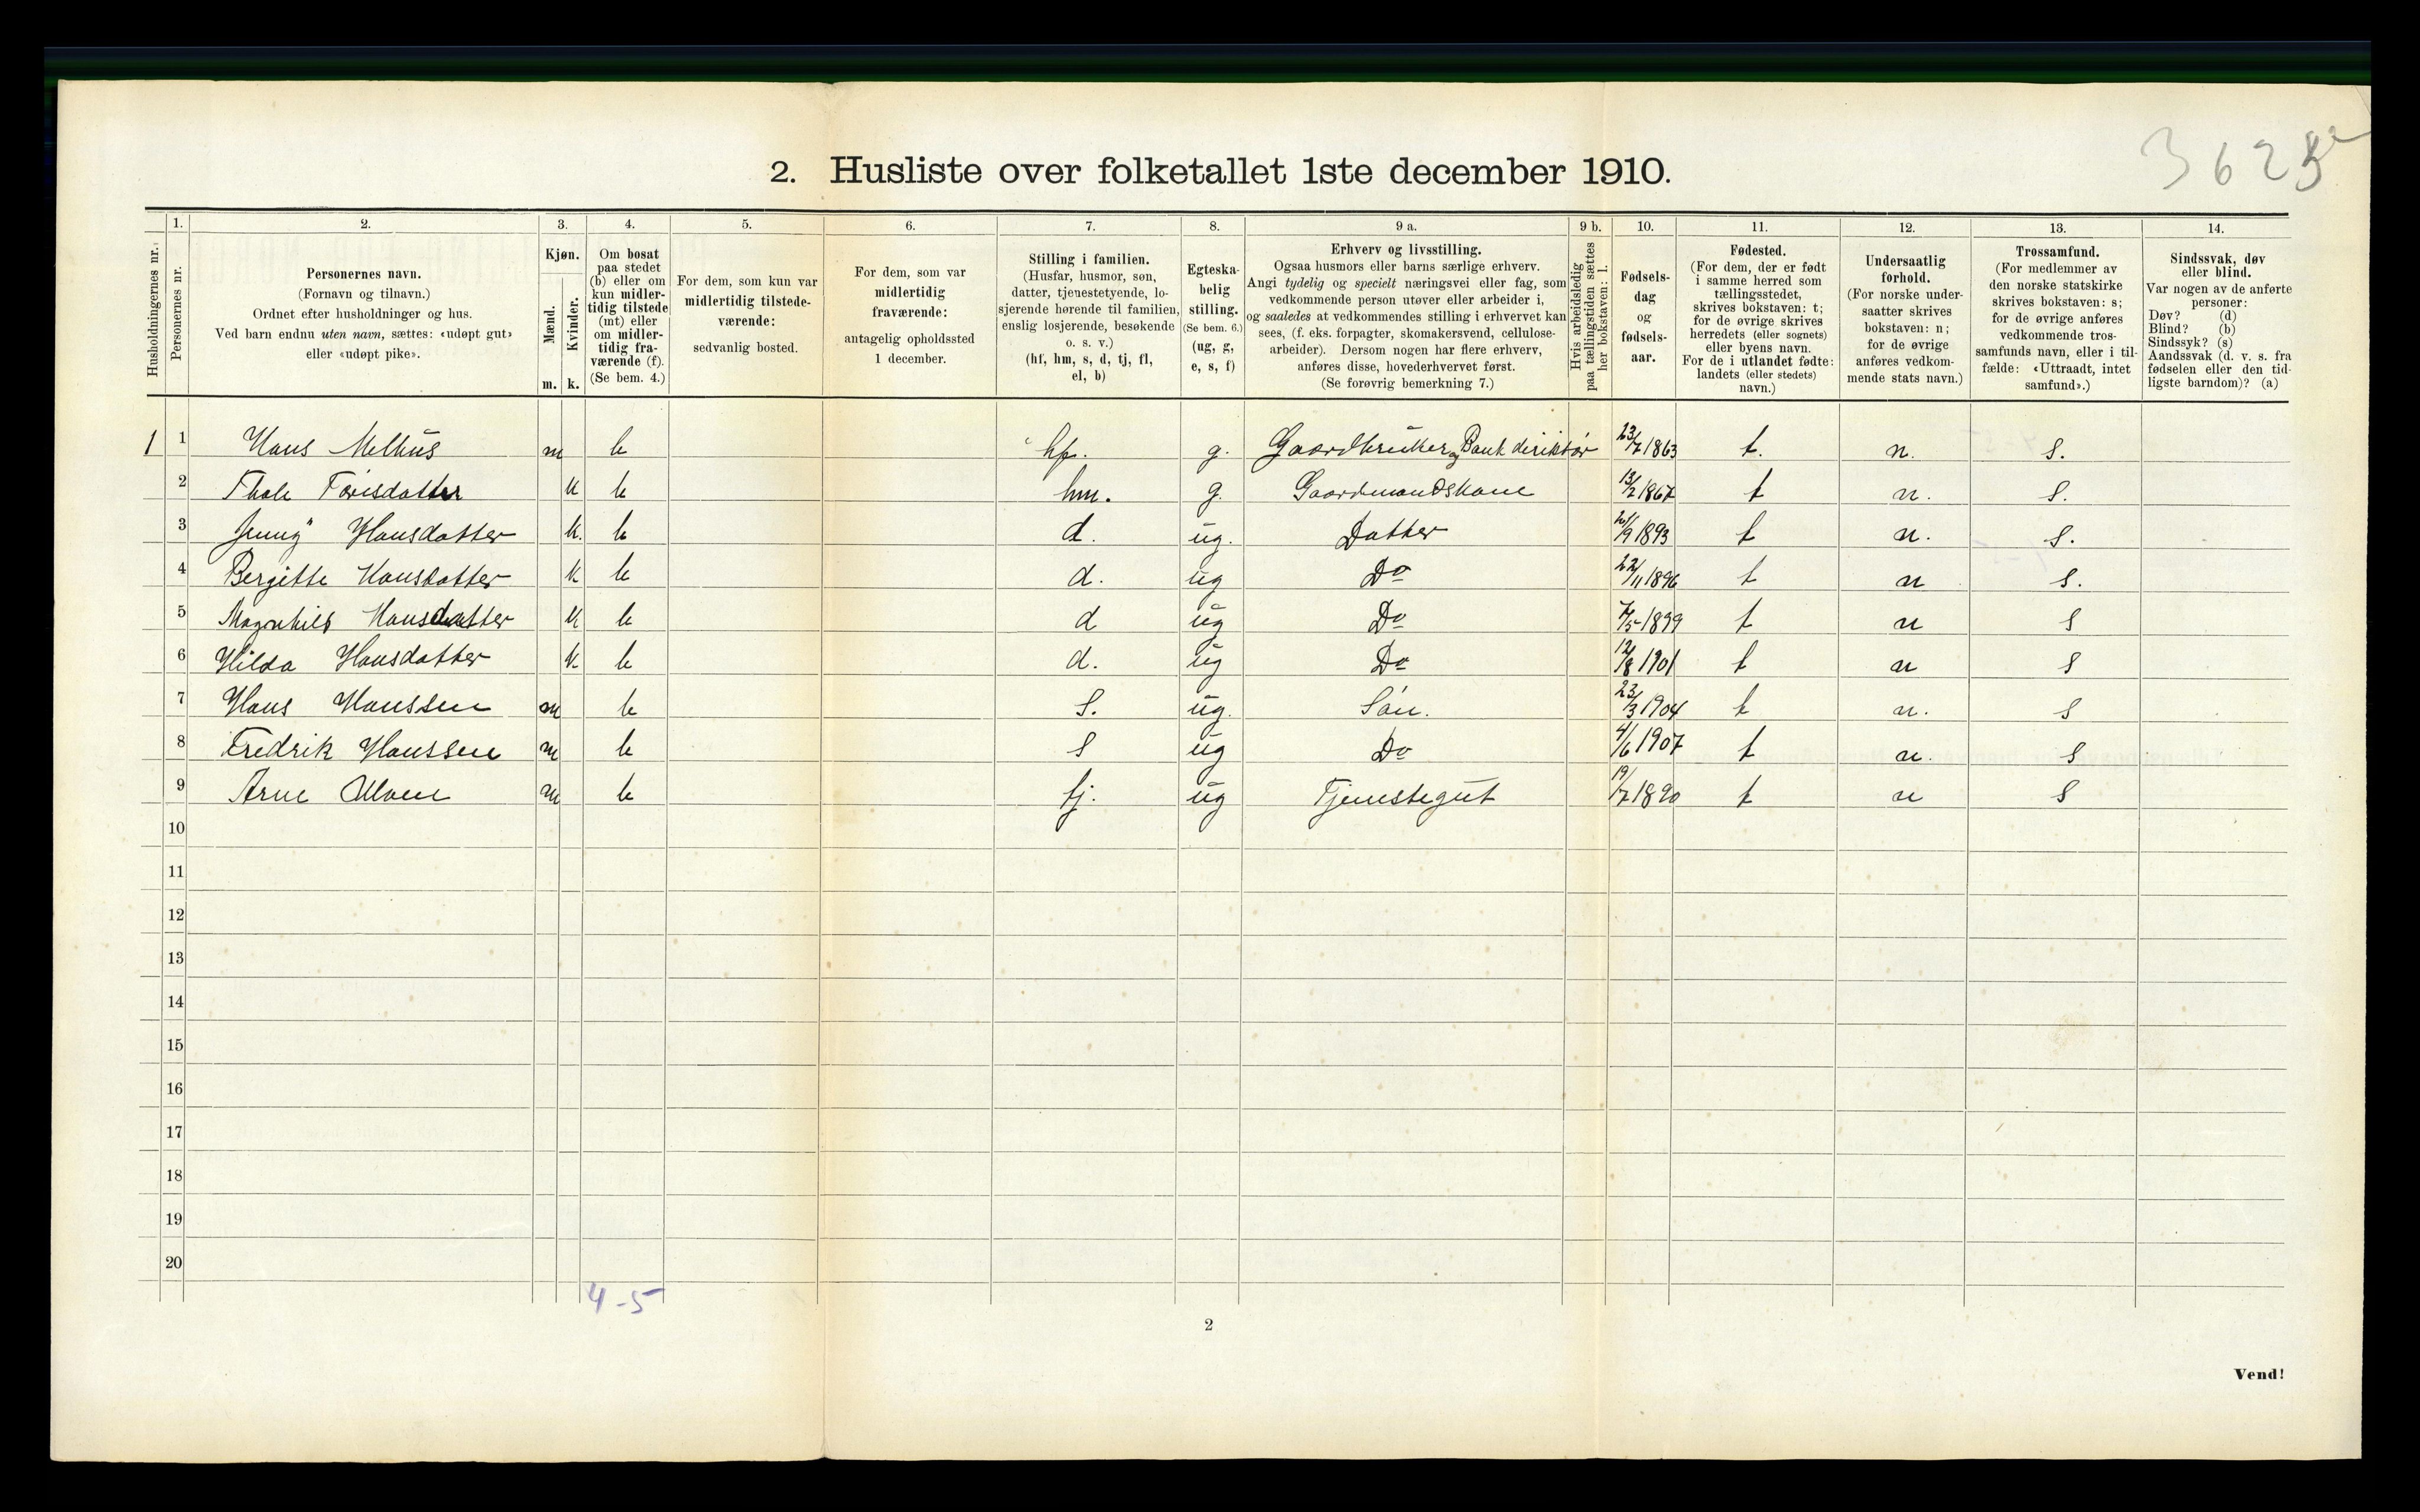 3625
2. Husliste over folketallet 1ste december 1910.
Husholdningernes nr. | 1. Personernes nr. | 2. Personernes navn. (Fornavn og tilnavn.) Ordnet efter husholdninger og hus. Ved barn endnu uten navn, sættes: «udøpt gut» eller «udøpt pike». | 3. Kjøn. Mænd. m. Kvinder. k. | 4. Om bosat paa stedet (b) eller om kun midlertidig tilstede (mt) eller om midlertidig fraværende (f). (Se bem. 4.) | 5. For dem, som kun var midlertidig tilstedeværende: sedvanlig bosted. | 6. For dem, som var midlertidig fraværende: antagelig opholdssted 1 december. | 7. Stilling i familien. (Husfar, husmor, søn, datter, tjenestetyende, losjerende hørende til familien, enslig losjerende, besøkende o. s. v.) (hf, hm, s, d, tj, fl, el, b) | 8. Egteskabelig stilling. (Se bem. 6.) (ug, g, e, s, f) | 9 a. Erhverv og livsstilling. Ogsaa husmors eller barns særlige erhverv. Angi tydelig og specielt næringsvei eller fag, som vedkommende person utøver eller arbeider i, og saaledes at vedkommendes stilling i erhvervet kan sees, (f. eks. forpagter, skomakersvend, cellulosearbeider). Dersom nogen har flere erhverv, anføres disse, hovederhvervet først. (Se forøvrig bemerkning 7.) | 9 b. Hvis arbeidsledig paa tællingstiden sættes her bokstaven: l. | 10. Fødselsdag og fødselsaar. | 11. Fødested. (For dem, der er født i samme herred som tællingsstedet, skrives bokstaven: t; for de øvrige skrives herredets (eller sognets) eller byens navn. For de i utlandet fødte: landets (eller stedets) navn.) | 12. Undersaatlig forhold. (For norske undersaatter skrives bokstaven: n; for de øvrige anføres vedkommende stats navn.) | 13. Trossamfund. (For medlemmer av den norske statskirke skrives bokstaven: s; for de øvrige anføres vedkommende trossamfunds navn, eller i tilfælde: «Uttraadt, intet samfund».) | 14. Sindssvak, døv eller blind. Var nogen av de anførte personer: Døv? (d) Blind? (b) Sindssyk? (s) Aandssvak (d. v. s. fra fødselen eller den tidligste barndom)? (a)
1 1 Hans Melhus m b hf. g. Gaardbruker og Bank direktør 23/7 1863 t. n. s.
2 k b hm. g. Gaardmandskone 13/2 1867 t n. s.
3 Jenny Hansdatter k. b d. ug. Datter 1893 t n. s.
4 Bergitte Hansdatter k b d. ug Do 22/11 1896 t n s.
5 Magnhild Hansdatter k b d ug Do 7/5 1899 t n s
6 Hilda Hansdatter k b d. ug Do 12/8 1901 t n s
7 Hans Hanssen m b s. ug. Søn. 23/3 1904 t n. s
8 Fredrik Hanssen m b s ug Do 4/6 1907 t n. s
9 Arne m b tj. ug Tjenstegut 19/7 1890 t n s
10
11
12
13
14
15
16
17
18
19
20
4-5
2
Vend!